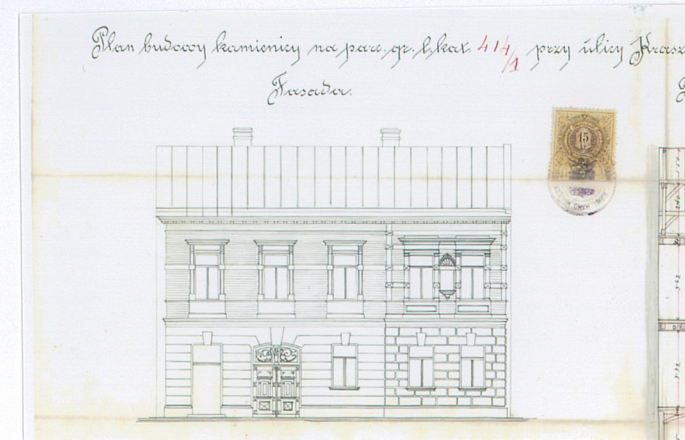 Plan budowy kamienicy na parc. gr. l. kat. 414/1 przy ulicy Krasz
Fasada.
15